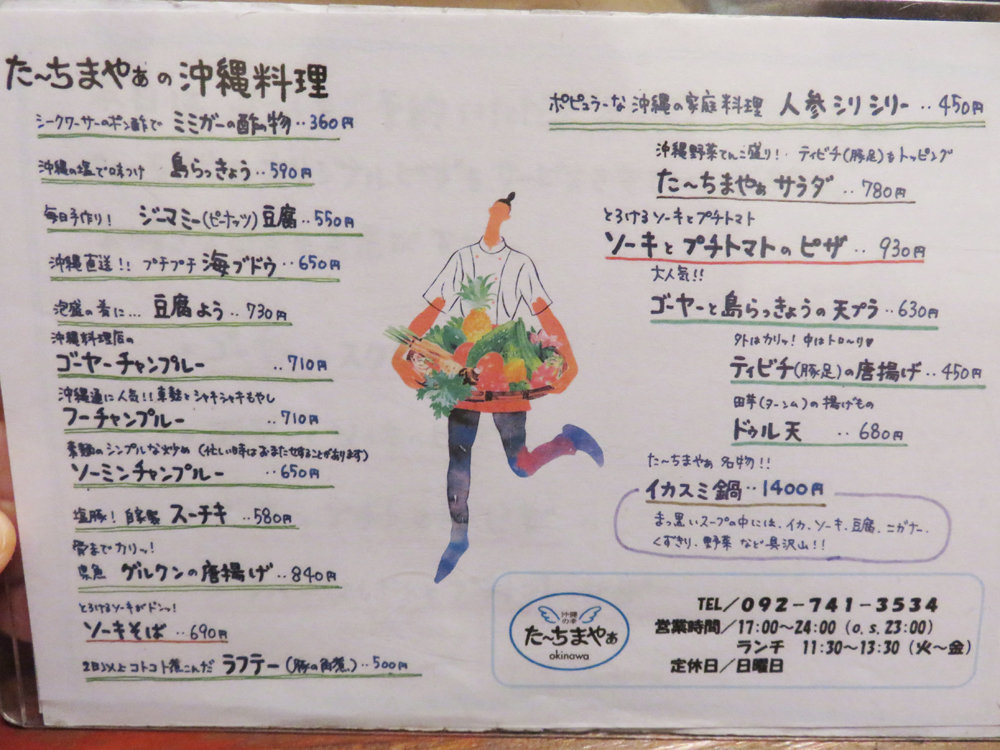 た～ちまやぁの沖縄料理
シークワーサーのポン酢で ミミガーの酢物‥360円
沖縄の塩で味つけ 島らっきょう‥590円
毎日手作り! ジーマミー(ピーナッツ)豆腐‥550円
沖縄直送!! プチプチ 海ブドウ‥650円
泡盛の肴に… 豆腐よう‥730円
沖縄料理店の
ゴーヤーチャンプルー ‥710円
沖縄通に人気!! 車麩とシャキシャキもやし
フーチャンプルー ‥710円
素麺のシンプルな炒め (忙しい時はおまたせすることがあります)
ソーミンチャンプルー ‥650円
塩豚! 自家製 スーチキ‥580円
骨までカリッ!
県魚 グルクンの唐揚げ‥840円
とろけるソーキがドンっ!
ソーキそば ‥690円
2日以上コトコト煮こんだ ラフテー(豚の角煮)‥500円
ポピュラーな沖縄の家庭料理 人参シリシリー‥450円
沖縄野菜てんこ盛り! ティビチ(豚足)もトッピング
た～ちまやぁサラダ‥780円
とろけるソーキとプチトマト
ソーキとプチトマトのピザ‥930円
大人気!!
ゴーヤーと島らっきょうの天プラ‥630円
外はカリッ! 中はトロ～リ♥
ティビチ(豚足)の唐揚げ‥450円
田芋(ターンム)の揚げもの
ドゥル天 ‥680円
た～ちまやぁ名物!!
イカスミ鍋‥1400円
まっ黒いスープの中には、イカ、ソーキ、豆腐、ニガナ、
くずきり、野菜 など具沢山!!
沖縄
の幸
た～ちまやぁ
okinawa
TEL/092-741-3534
営業時間/17:00～24:00 (o.s.23:00)
ランチ 11:30～13:30 (火～金)
定休日/日曜日